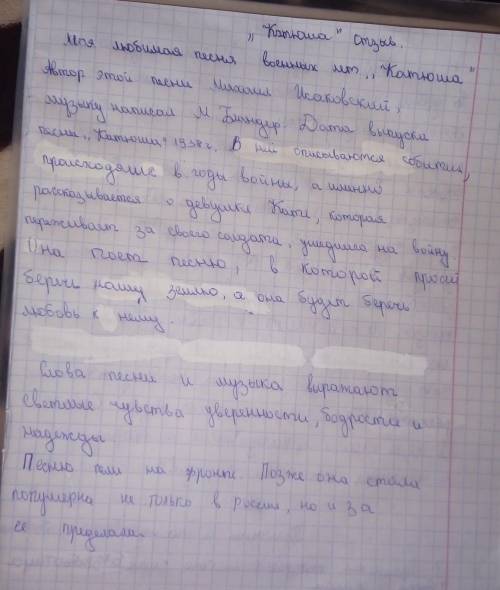 „Катюша" отзыв.
Моя любимая песня военных лет „Катюша"
Автор этой песни Михаил Исаковский,
музыку написал М Блундер. Дата выпуска
песни „Катюша" 1938 г. В ней описываются события,
происходящие в годы войны, а именно
рассказывается о девушке Кати, которая
переживает за своего солдата, ушедшего на войну.
Она поет песню, в которой просит
беречь нашу землю, а она будет беречь
любовь к нему.
Слова песни и музыка выражают
светлые чувства уверенности, бодрости и
надежды.
Песню пели на фронте. Позже она стала
популярна не только в россии, но и за
её пределами.